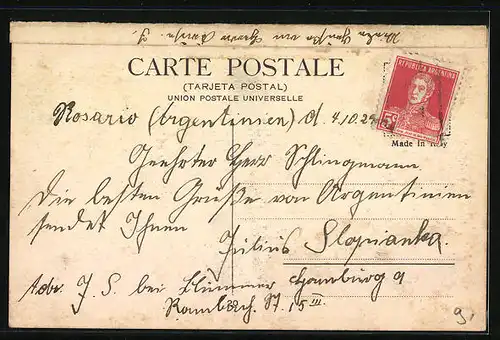 Viele Grüße an Herrn
CARTE POSTALE
(TARJETA POSTAL)
UNION POSTALE UNIVERSELLE
REPUBLICA ARGENTINA
5c
Made in Italy
Rosario (Argentinien) d. 4.10.29
Geehrter Herr Schlingmann
Die besten Grüße von Argentinien
sendet Ihnen
Julius Slopianka.
Adr. J. S. bei Hamburg 9
St. 15 III.